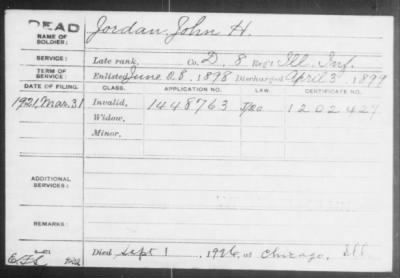 DEAD
NAME OF SOLDIER: Jordan, John H.
SERVICE: Late rank, Co. D, 8 Reg't Ill. Inf.
TERM OF SERVICE: Enlisted June 28, 1898 Discharged April 3, 1899
DATE OF FILING. CLASS. APPLICATION NO. LAW. CERTIFICATE NO.
1921, Mar. 31 Invalid, 1448763 1202427
Widow,
Minor,
ADDITIONAL SERVICES:
REMARKS:
Died Sept 1, 1926, at Chicago, Ill.